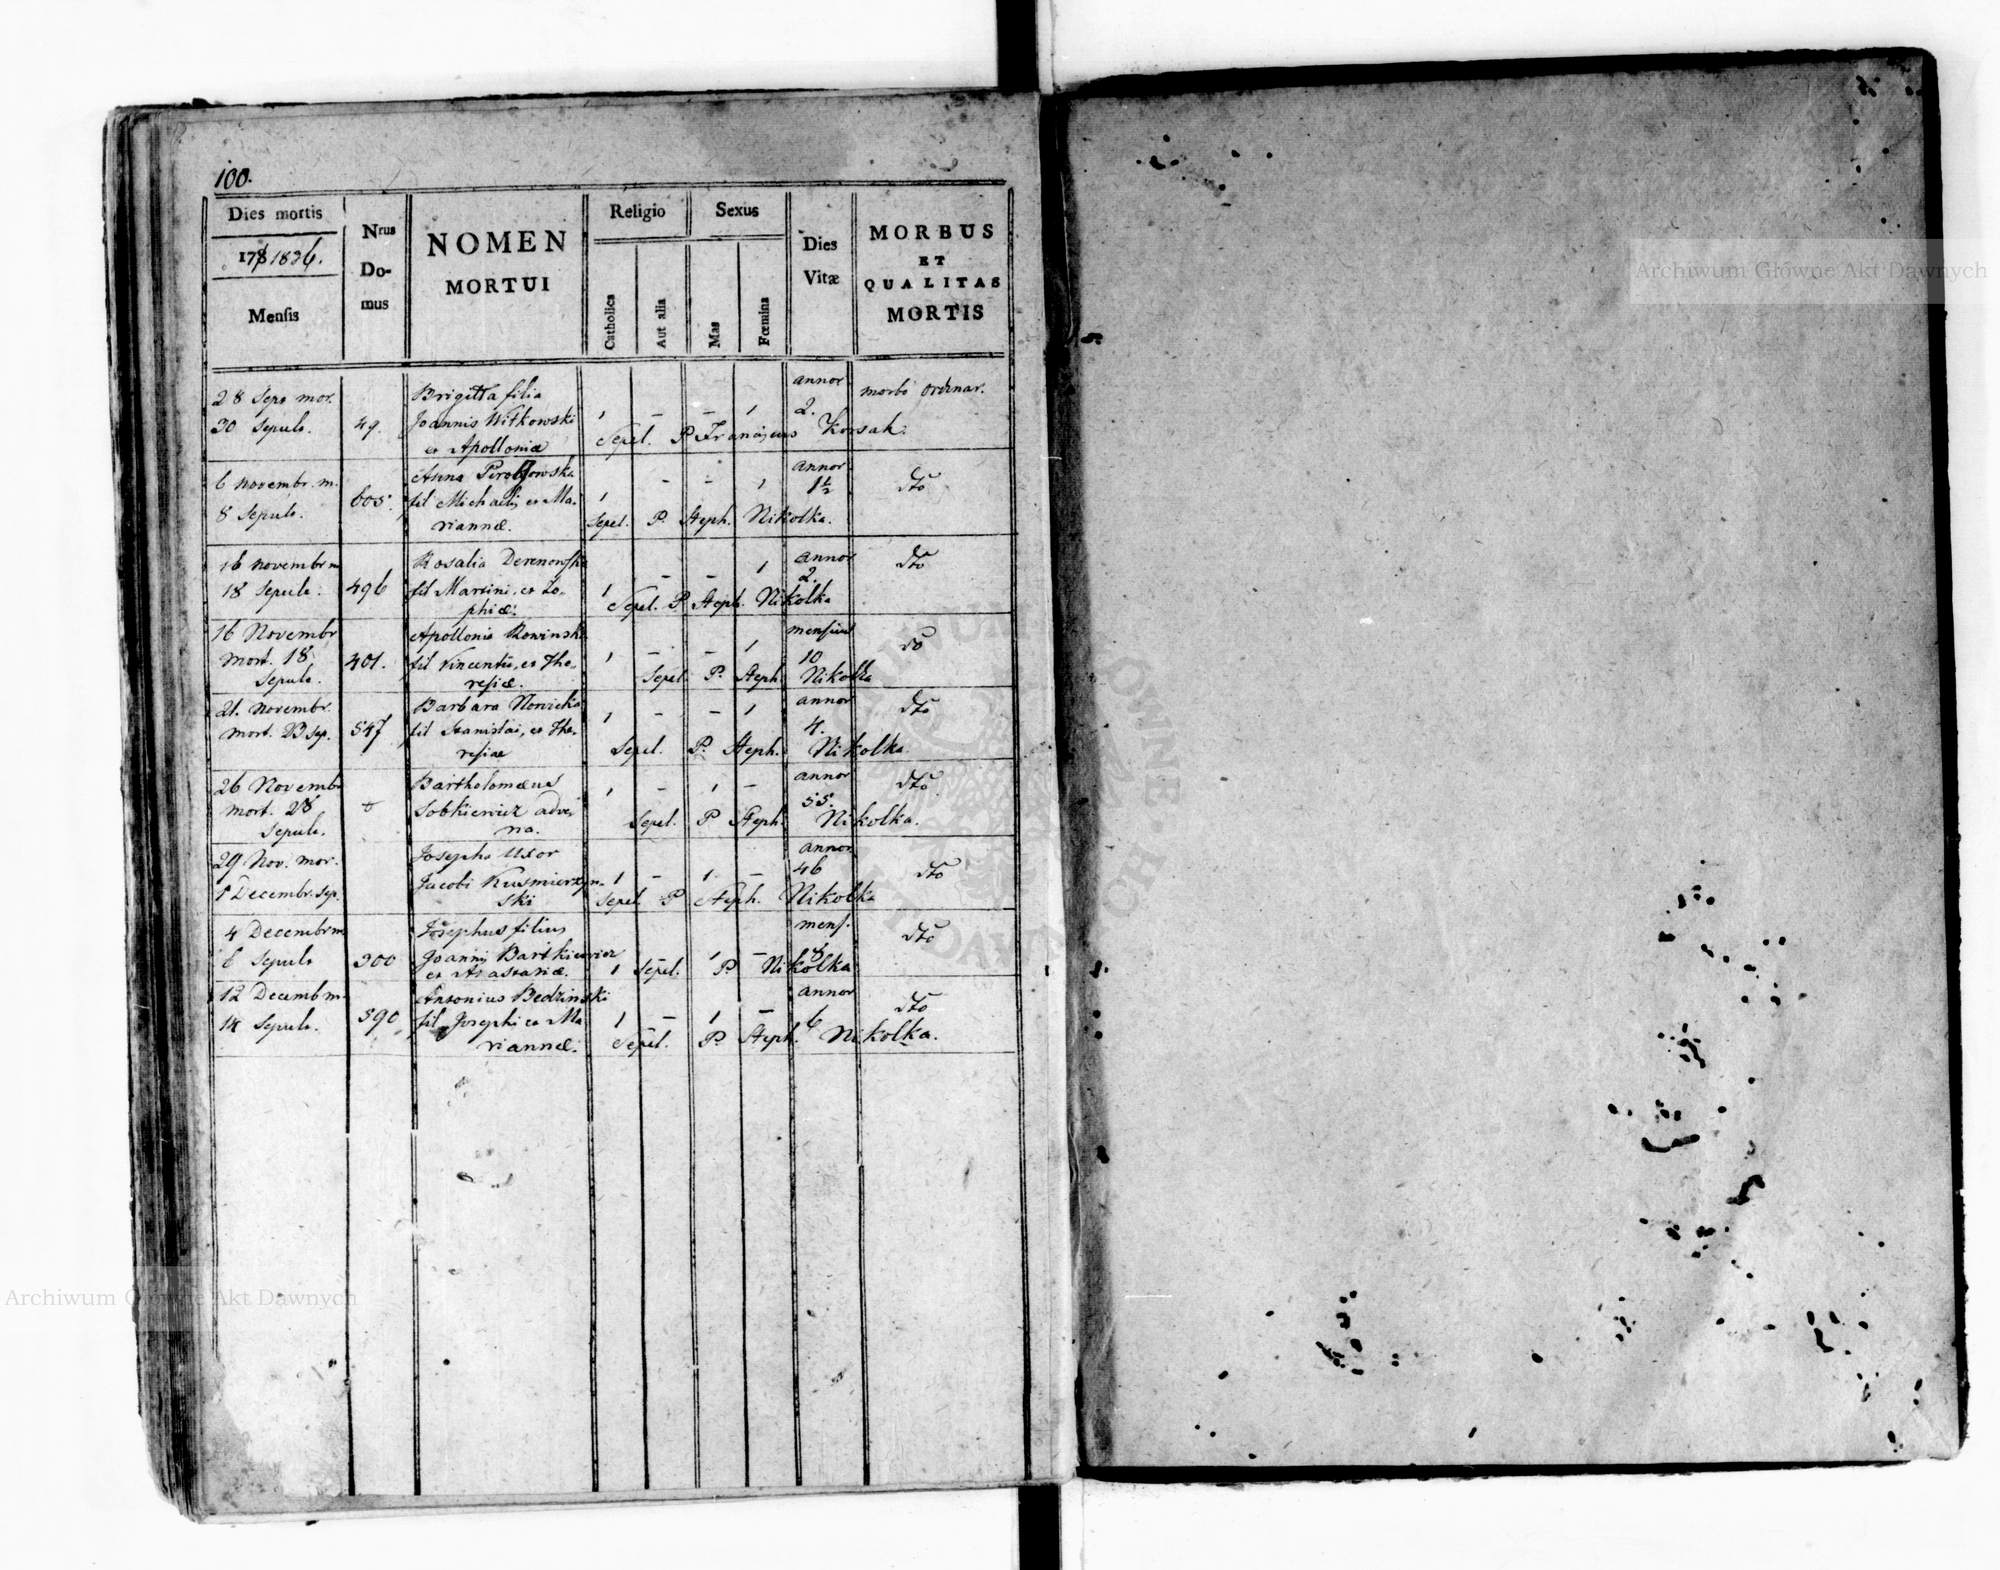 100.
Dies mortis
Nrus
Do-
mus
NOMEN
MORTUI
Religio
Sexus
Dies
Vitæ
MORBUS
ET
QUALITAS
MORTIS
178 1836.
Mensis
Catholica
Aut alia
Mas
Fœmina
28 Sepr mor.
30 Sepult.
49.
Brigitta filia
Joannis Witkowski
et Apolloniæ
1 – – 1
annor
2.
morbo ordinar.
Sepel. P Franciscus Korsak.
6 novembr. m.
8 Sepult.
605.
Anna
fil Michaelis et Ma-
riannæ.
1 – – 1
annor
1½
dto
Sepel. P. Steph. Nikolka.
16 novembr m
18 Sepult.
496
Rosalia Derenowska
fil Martini, et Zo-
phiæ.
1 – – 1
annor
2.
dto
Sepel. P. Steph. Nikolka
16 Novembr
mort. 18
Sepult.
401.
Apollonia Rowinska
fil Vincentii, et The-
resiæ.
1 – – 1
mensium
10
dto
Sepel. P. Steph. Nikolka
21. Novembr.
mort. 23 Sep.
547
Barbara Nowicka
fil Stanislai, et The-
resiae
1 – – 1
annor
4.
dto
Sepel. P. Steph. Nikolka.
26 Novembr
mort. 28
Sepult.
Bartholomæus
Sobkiewicz adve-
na.
1 – 1 –
annor
55.
dto
Sepel. P Steph. Nikolka.
29 Nov. mor.
1 Decembr. Sep.
Josepha Uxor
Jacobi Kusmierzyn-
ski
1 – 1 –
annor
46
dto
Sepel P Steph. Nikolka
4 Decembr m
6 Sepult
300
Josephus filius
Joannis Bartkiewicz
et Anastasiæ.
1 – 1 –
mens.
8
dto
Sepel. P. Nikolka
12 Decemb m.
14 Sepult.
590
Antonius Bedzinski
fil Josephi et Ma
riannæ.
1 – 1 –
annor
6
dto
Sepel. P. Steph. Nikolka.
Archiwum Główne Akt Dawnych
Archiwum Główne Akt Dawnych